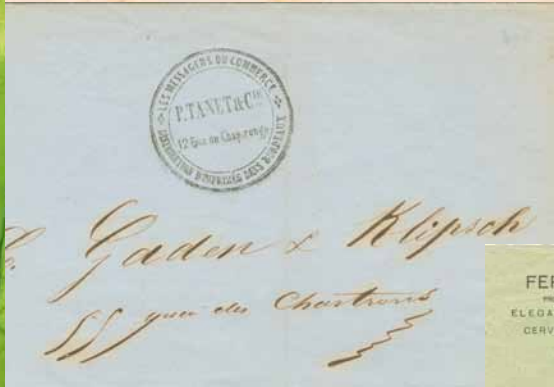 LES MESSAGERS DU COMMERCE
P. TANET & CIE
12 Rue du Chapeau
DISTRIBUTION D'IMPRIMÉS DANS BORDEAUX
Gaden & Klipsch
55 quai des Chartrons
FER
ELEGA
CERV